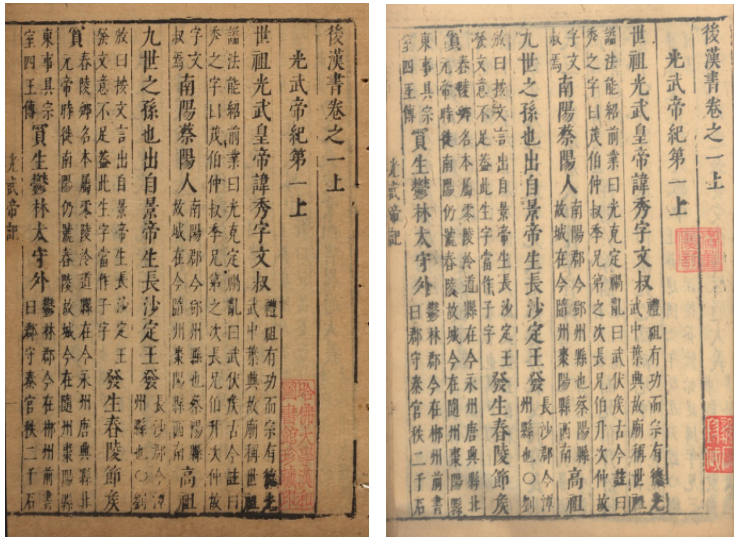 後漢書卷之一上
光武帝紀第一上
世祖光武皇帝諱秀字文叔
禮祖有功而宗有德光
武中葉興故廟稱世祖
諡法能紹前業曰光克定禍亂曰武伏侯古今註曰
秀之字曰茂伯仲叔季兄弟之次長兄伯升次仲故
字文
叔焉
南陽蔡陽人
南陽郡今鄧州縣也蔡陽縣
故城在今隨州棗陽縣西南
高祖
九世之孫也出自景帝生長沙定王發
長沙郡今潭
州縣也○劉
攽曰按文言出自景帝生長沙定王
發文意不足蓋此生字當作子字
發生舂陵節侯
買
舂陵鄉名本屬零陵泠道縣在今永州唐興縣北
元帝時徙南陽仍號舂陵故城今在隨州棗陽縣
東事具宗
室四王傳
買生鬱林太守外
鬱林郡今在郴州前書
曰郡守秦官秩二千石
光武帝紀
哈佛大學漢和
圖書館珍藏印
後漢書卷之一上
光武帝紀第一上
世祖光武皇帝諱秀字文叔
禮祖有功而宗有德光
武中葉興故廟稱世祖
諡法能紹前業曰光克定禍亂曰武伏侯古今註曰
秀之字曰茂伯仲叔季兄弟之次長兄伯升次仲故
字文
叔焉
南陽蔡陽人
南陽郡今鄧州縣也蔡陽縣
故城在今隨州棗陽縣西南
高祖
九世之孫也出自景帝生長沙定王發
長沙郡今潭
州縣也○劉
攽曰按文言出自景帝生長沙定王
發文意不足蓋此生字當作子字
發生舂陵節侯
買
舂陵鄉名本屬零陵泠道縣在今永州唐興縣北
元帝時徙南陽仍號舂陵故城今在隨州棗陽縣
東事具宗
室四王傳
買生鬱林太守外
鬱林郡今在郴州前書
曰郡守秦官秩二千石
光武帝紀